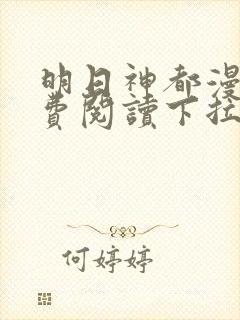 明日神都漫
費閱讀下拉
何婷婷